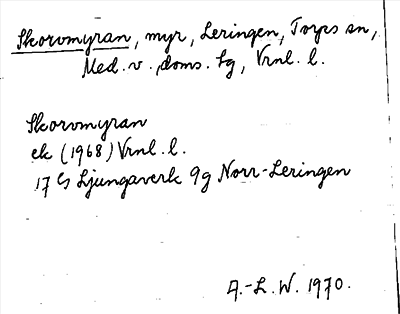 Skorvmyran, myr, Leringen, Torps sn,
Med. v. doms. tg, Vrnl. l.
Skorvmyran
ek (1968) Vrnl. l.
17 G Ljungaverk 9g Norr-Leringen
A.-L. W. 1970.